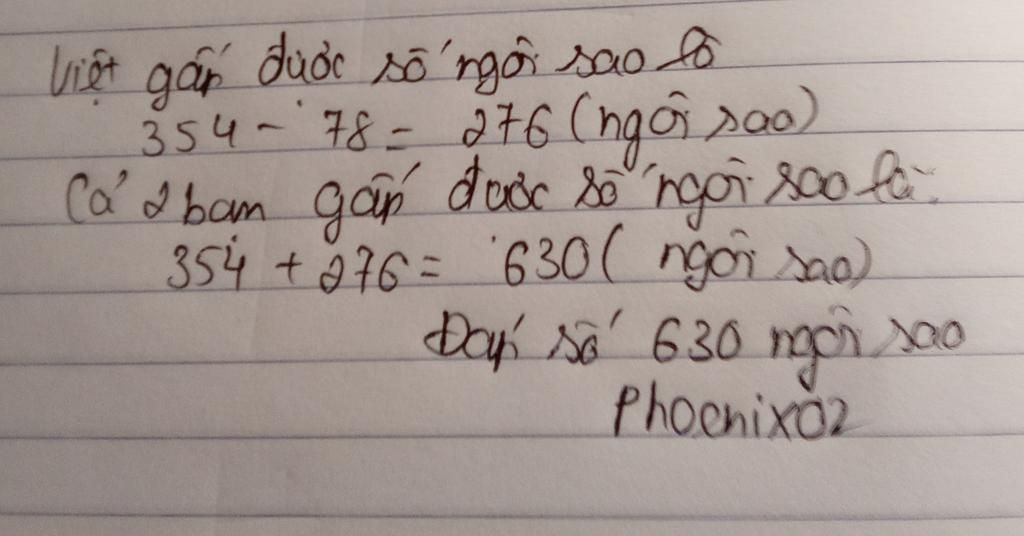 Việt gấp được số ngôi sao là
354 - 78 = 276 (ngôi sao)
Cả 2 bạn gấp được số ngôi sao là:
354 + 276 = 630 ( ngôi sao)
Đáp số 630 ngôi sao
Phoenix02